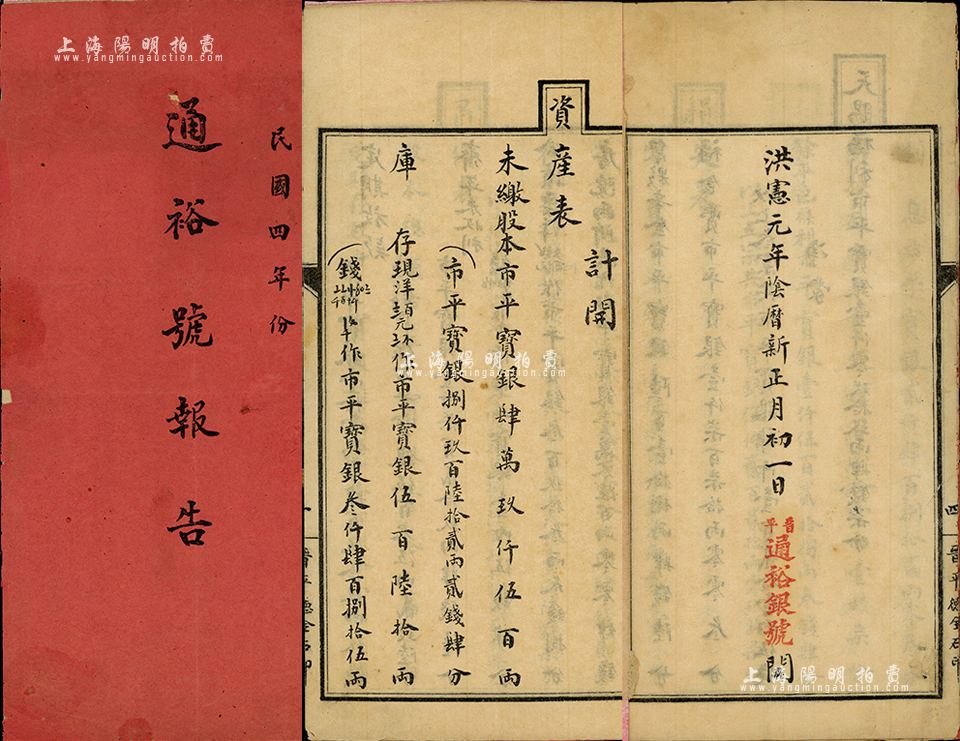 上海陽明拍賣
www.yangmingauction.com
民國四年份
通裕號報告
資產表
計開
未繳股本市平寶銀肆萬玖仟伍百兩
(市平寶銀捌仟玖百陸拾貳兩貳錢肆分
庫存現洋 作市平寶銀伍百陸拾兩
(錢 作市平寶銀叁仟肆百捌拾伍兩
一 晉平德金石印
上海陽明拍賣
www.yangmingauction.com
洪憲元年陰曆新正月初一日
晉平通裕銀號開
四 晉平德金石印
上海陽明拍賣
www.yangmingauction.com